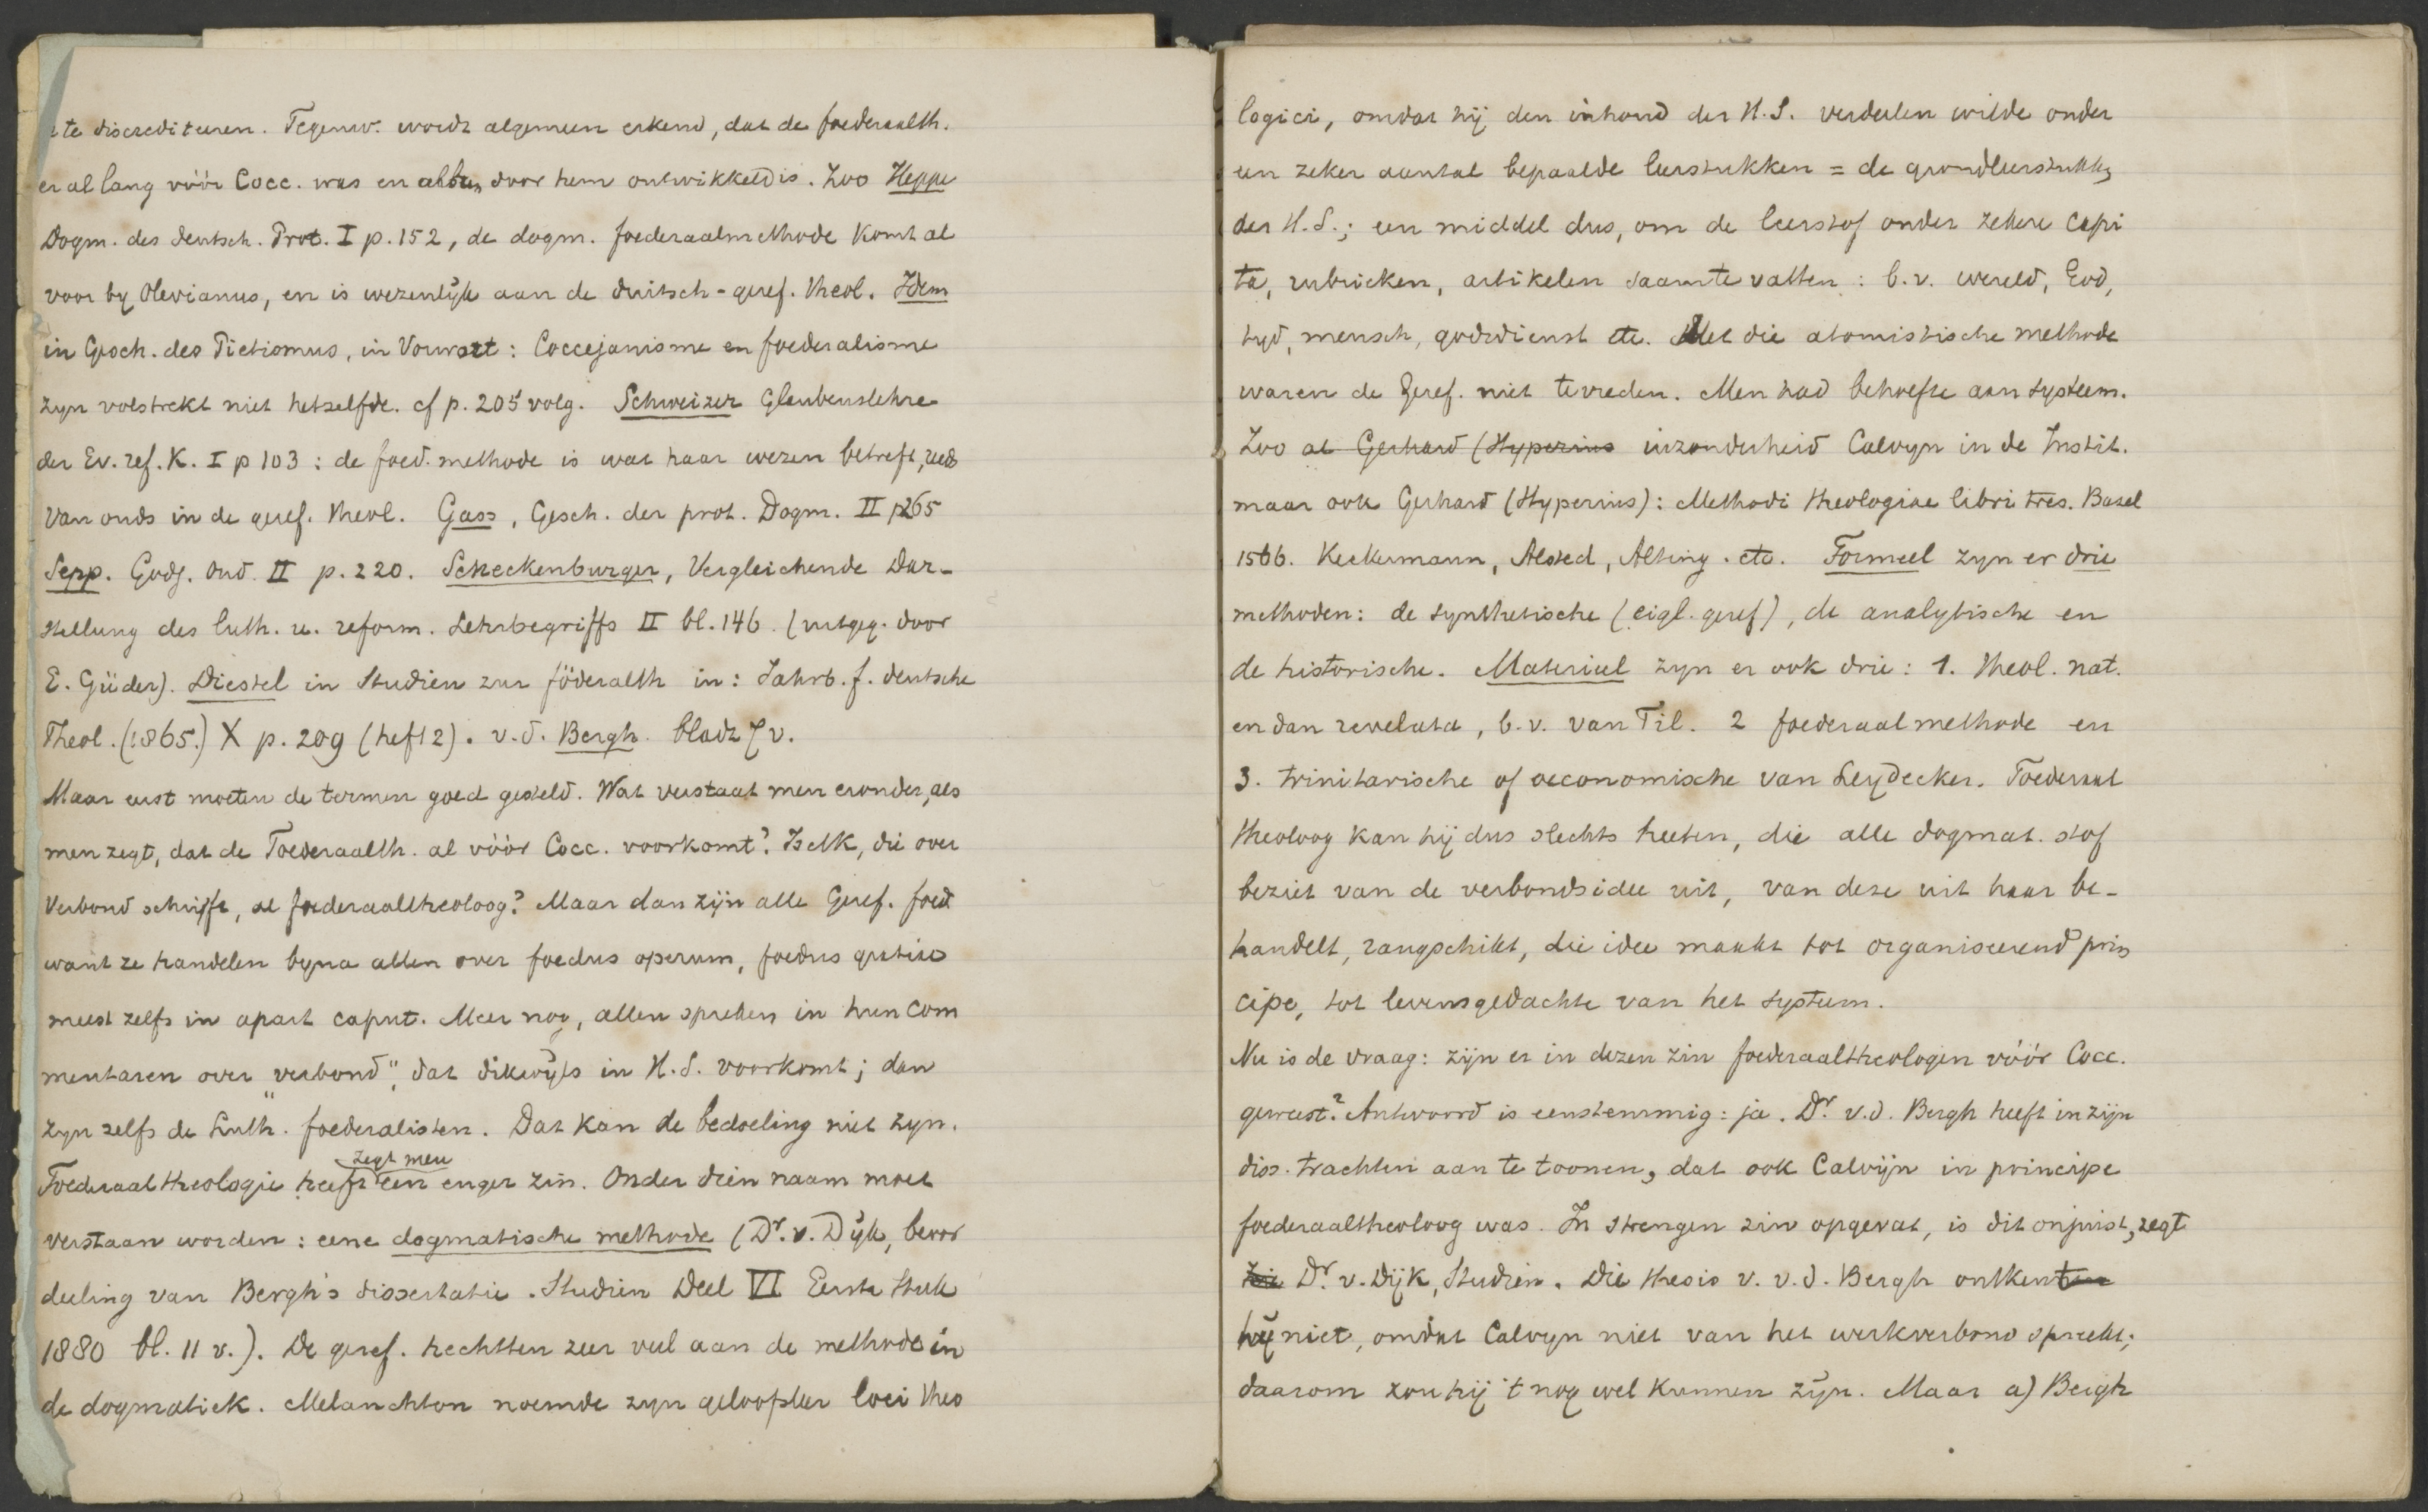 te discrediteeren. Tegenw. wordt algemeen erkend, dat de foederaalth.
er al lang vóór Cocc. was en alleen door hem ontwikkeld is. Zoo Heppe
Dogm. des deutsch. Prot. I p. 152, de dogm. foederaalmethode komt al
voor by Olevianus, en is wezenlijk aan de duitsch-geref. theol. Idem
in Gesch. des Pietismus, in Vorwort: Coccejanisme en foederalisme
zyn volstrekt niet hetzelfde. cf p. 205 volg. Schweizer Glaubenslehre
der Ev. ref. K. I p 103: de foed. methode is wat haar wezen betreft, reeds
van ouds in de geref. theol. Gass, Gesch. der prot. Dogm. II p265
Sepp. Godg. Ond. II p. 220. Scheckenburger, Vergleichende Dar-
stellung des luth. u. reform. Lehrbegriffs II bl. 146. (uitgeg. door
E. Güder). Diestel in Studien zur föderalth in: Jahrb. f. deutsche
Theol. (1865.) X p. 209 (heft 2). v.d. Bergh. bladz 7 v.
Maar eerst moeten de termen goed gesteld. Wat verstaat men eronder, als
men zegt, dat de Foederaalth. al vóór Cocc. voorkomt? Is elk, die over
Verbond schrijft, al foederaaltheoloog? Maar dan zijn alle Geref. foed
want ze handelen byna allen over foedus operum, foedus gratiae
meest zelfs in apart caput. Meer nog, allen spreken in hun com
mentaren over "verbond", dat dikwijls in H.S. voorkomt; dan
zyn zelfs de Luth. foederalisten. Dat kan de bedoeling niet zyn.
zegt men
Foederaaltheologie heeft een enger zin. Onder dien naam moet
verstaan worden: eene dogmatische methode (Dr. v. Dijk, beoor
deeling van Bergh's dissertatie. Studien Deel VI Eerste Stuk
1880 bl. 11 v.). De geref. hechtten zeer veel aan de methode in
de dogmatiek. Melanchton noemde zyn geloofsleer loci theo
logici, omdat hij den inhoud der H.S. verdeelen wilde onder
een zeker aantal bepaalde leerstukken = de grondleerstukken
der H.S.; een middel dus, om de leerstof onder zekere capi
ta, rubrieken, artikelen saam te vatten: b.v. wereld, God,
tyd, mensch, godsdienst etc. Met die atomistische methode
waren de Geref. niet tevreden. Men had behoefte aan systeem.
Zoo al Gerhard (Hyperius inzonderheid Calvyn in de Instit.
maar ook Gerhard (Hyperius): Methodi theologiae libri tres. Basel
1566. Keckermann, Alsted, Alting. etc. Formeel zyn er drie
methoden: de synthetische (eigl. geref), de analytische en
de historische. Materieel zyn er ook drie: 1. theol. nat.
en dan revelata, b.v. van Til. 2 foederaalmethode en
3. trinitarische of oeconomische van Leydecker. Foederaal
theoloog kan hij dus slechts heeten, die alle dogmat. stof
beziet van de verbondsidee uit, van deze uit haar be-
handelt, rangschikt, die idee maakt tot organiseerend prin
cipe, tot levensgedachte van het systeem.
Nu is de vraag: zijn er in dezen zin foederaaltheologen vóór Cocc.
geweest? Antwoord is eenstemmig: ja. Dr. v.d. Bergh heeft in zijn
diss. trachten aan te toonen, dat ook Calvijn in principe
foederaaltheoloog was. In strengen zin opgevat, is dit onjuist, zegt
Dr. v. Dijk, Studien. Die thesis v. v.d. Bergh ontkent
hij niet, omdat Calvyn niet van het werkverbond spreekt;
daarom zou hij 't nog wel kunnen zijn. Maar a) Bergh